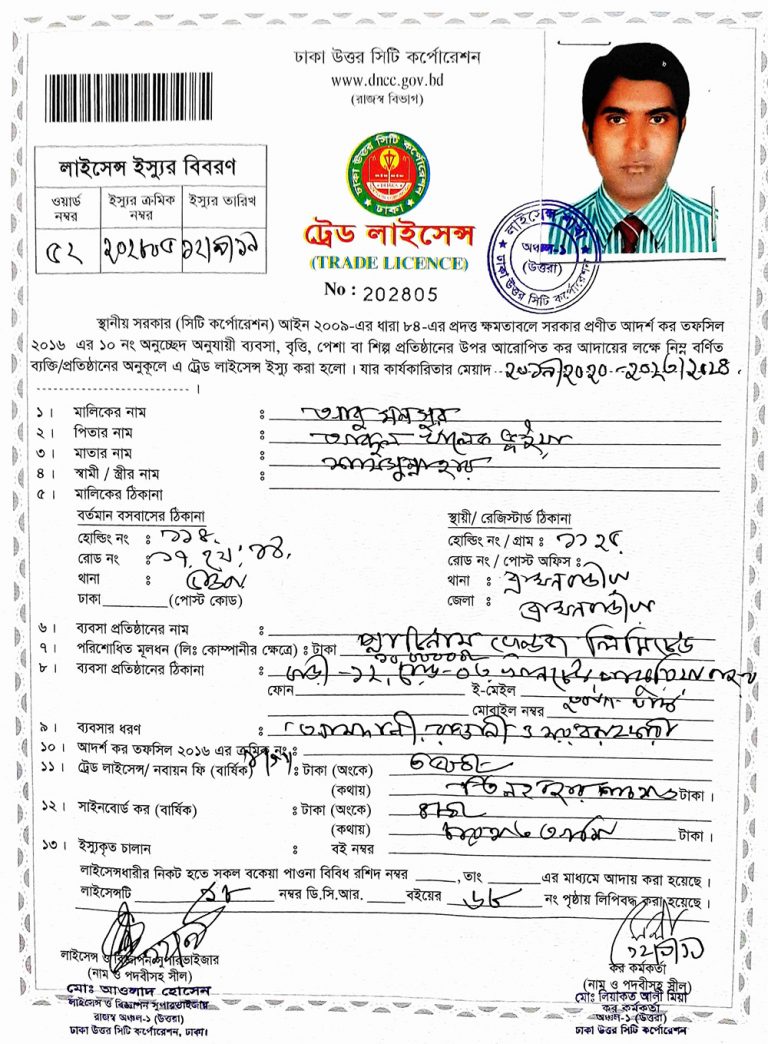 ঢাকা উত্তর সিটি কর্পোরেশন
www.dncc.gov.bd
(রাজস্ব বিভাগ)
লাইসেন্স ইস্যুর বিবরণ
ওয়ার্ড নম্বর ইস্যুর ক্রমিক নম্বর ইস্যুর তারিখ
৫২ ২০২৮০৫
ঢাকা উত্তর সিটি কর্পোরেশন
ঢাকা
ট্রেড লাইসেন্স
(TRADE LICENCE)
No : 202805
লাইসেন্স শাখা
অঞ্চল-১
(উত্তরা)
ঢাকা উত্তর সিটি কর্পোরেশন
স্থানীয় সরকার (সিটি কর্পোরেশন) আইন ২০০৯-এর ধারা ৮৪-এর প্রদত্ত ক্ষমতাবলে সরকার প্রণীত আদর্শ কর তফসিল
২০১৬ এর ১০ নং অনুচ্ছেদ অনুযায়ী ব্যবসা, বৃত্তি, পেশা বা শিল্প প্রতিষ্ঠানের উপর আরোপিত কর আদায়ের লক্ষে নিম্ন বর্ণিত
ব্যক্তি/প্রতিষ্ঠানের অনুকূলে এ ট্রেড লাইসেন্স ইস্যু করা হলো। যার কার্যকারিতার মেয়াদ
।
১। মালিকের নাম : আবু মনসুর
২। পিতার নাম : আবদুল খালেক ভূঁইয়া
৩। মাতার নাম : শামসুন্নাহার
৪। স্বামী / স্ত্রীর নাম :
৫। মালিকের ঠিকানা
বর্তমান বসবাসের ঠিকানা স্থায়ী/ রেজিস্টার্ড ঠিকানা
হোল্ডিং নং : হোল্ডিং নং / গ্রাম :
রোড নং : রোড নং / পোস্ট অফিস :
থানা : থানা : ব্রাহ্মনবাড়ীয়া
ঢাকা (পোস্ট কোড) জেলা : ব্রাহ্মনবাড়ীয়া
৬। ব্যবসা প্রতিষ্ঠানের নাম : লিমিটেড
৭। পরিশোধিত মূলধন (লিঃ কোম্পানীর ক্ষেত্রে) : টাকা
৮। ব্যবসা প্রতিষ্ঠানের ঠিকানা : বাড়ী -১২, রোড-০৬,
ফোন ই-মেইল
মোবাইল নম্বর
৯। ব্যবসার ধরণ : আমদানী, রপ্তানী ও সরবরাহকারী
১০। আদর্শ কর তফসিল ২০১৬ এর ক্রমিক নং :
১১। ট্রেড লাইসেন্স/ নবায়ন ফি (বার্ষিক) : টাকা (অংকে)
(কথায়) টাকা।
১২। সাইনবোর্ড কর (বার্ষিক) : টাকা (অংকে)
(কথায়) টাকা।
১৩। ইস্যুকৃত চালান : বই নম্বর
লাইসেন্সধারীর নিকট হতে সকল বকেয়া পাওনা বিবিধ রশিদ নম্বর , তাং এর মাধ্যমে আদায় করা হয়েছে।
লাইসেন্সটি নম্বর ডি.সি.আর. বইয়ের ৬৮ নং পৃষ্ঠায় লিপিবদ্ধ করা হয়েছে।
লাইসেন্স ও বিজ্ঞাপন সুপারভাইজার
(নাম ও পদবীসহ সীল)
মোঃ আওলাদ হোসেন
লাইসেন্স ও বিজ্ঞাপন সুপারভাইজার
রাজস্ব অঞ্চল-১ (উত্তরা)
ঢাকা উত্তর সিটি কর্পোরেশন, ঢাকা।
কর কর্মকর্তা
(নাম ও পদবীসহ সীল)
মোঃ লিয়াকত আলী মিয়া
কর কর্মকর্তা
অঞ্চল-১ (উত্তরা)
ঢাকা উত্তর সিটি কর্পোরেশন